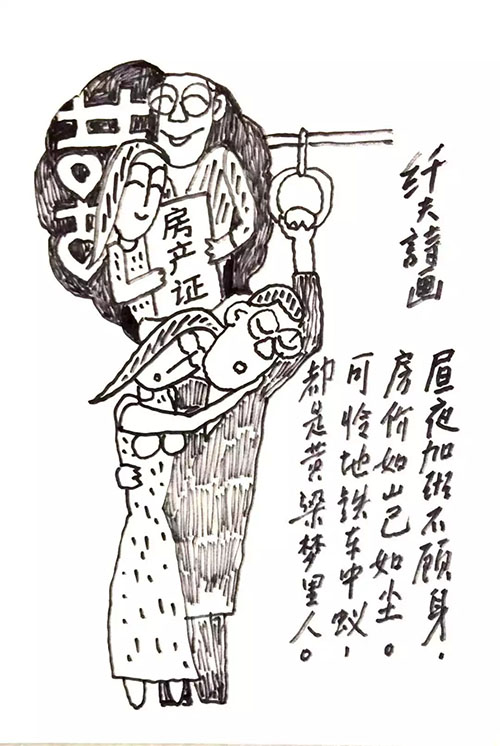 纤夫詩画
昼夜加班不顾身，
房价如山己如尘。
可怜地铁车中蚁，
都是黄粱梦里人。
囍
房产证